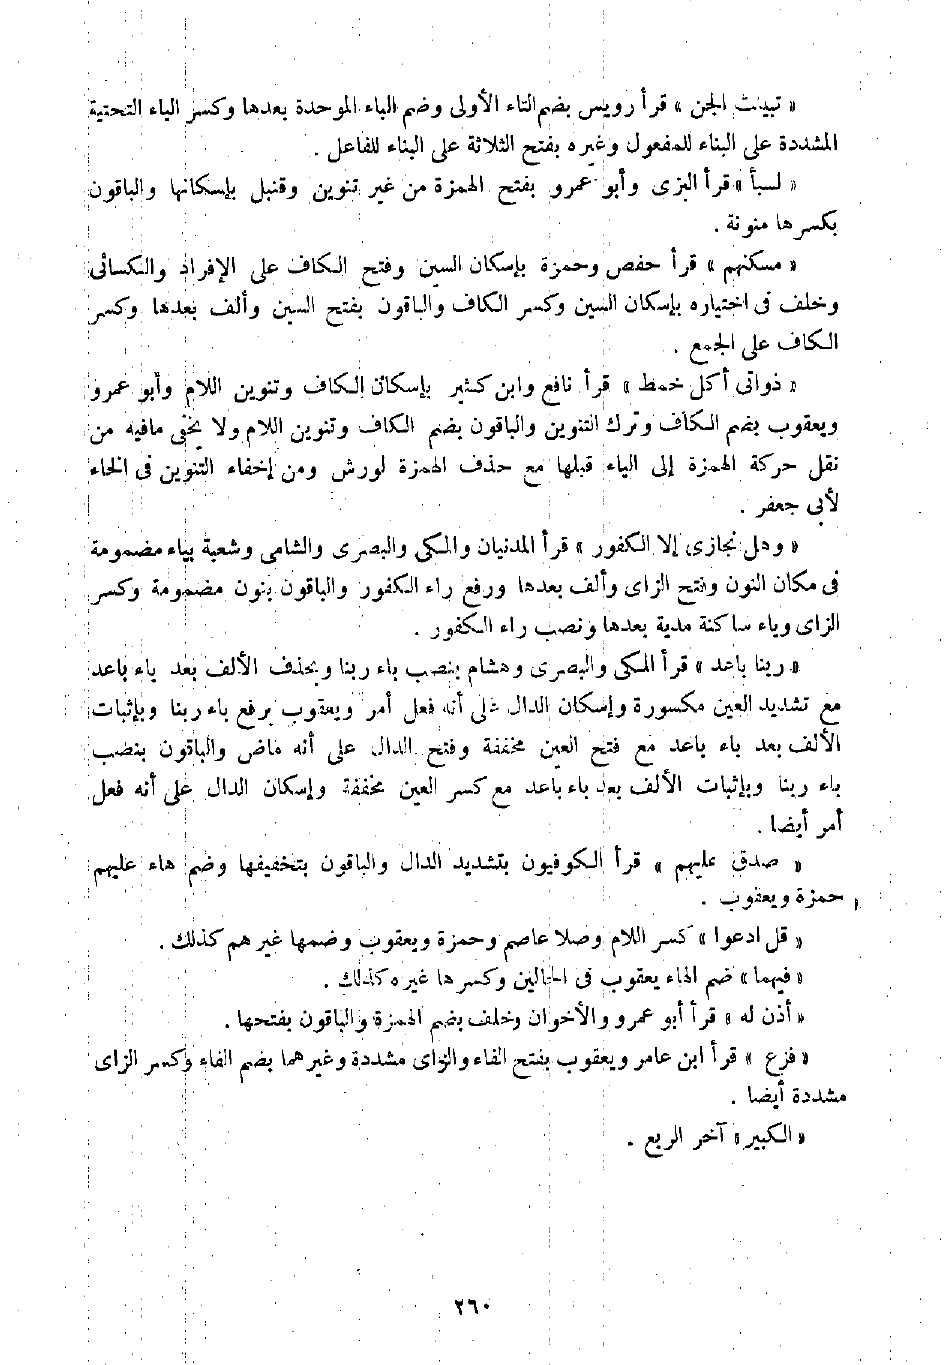 « تبينت الجن » قرأ رويس بضم التاء الأولى وضم الباء الموحدة بعدها وكسر الياء التحتية
المشددة على البناء للمفعول وغيره بفتح الثلاثة على البناء للفاعل .
« لسبأ » قرأ البزى وأبو عمرو بفتح الهمزة من غير تنوين وقنبل بإسكانها والباقون
بكسرها منونة .
« مسكنهم » قرأ حفص وحمزة بإسكان السين وفتح الكاف على الإفراد والكسائى
وخلف فى اختياره بإسكان السين وكسر الكاف والباقون بفتح السين وألف بعدها وكسر
الكاف على الجمع .
« ذواتى أكل خمط » قرأ نافع وابن كثير بإسكان الكاف وتنوين اللام وأبو عمرو
ويعقوب بضم الكاف وترك التنوين والباقون بضم الكاف وتنوين اللام ولا يخفى مافيه من
نقل حركة الهمزة إلى الياء قبلها مع حذف الهمزة لورش ومن إخفاء التنوين فى الخاء
لأبى جعفر .
« وهل نجازى إلا الكفور » قرأ المدنيان والمكى والبصرى والشامى وشعبة بياء مضمومة
فى مكان النون وفتح الزاى وألف بعدها ورفع راء الكفور والباقون بنون مضمومة وكسر
الزاى وياء ساكنة مدية بعدها ونصب راء الكفور .
« ربنا باعد » قرأ المكى والبصرى وهشام بنصب باء ربنا وبحذف الألف بعد باء باعد
مع تشديد العين مكسورة وإسكان الدال على أنه فعل أمر ويعقوب برفع باء ربنا وبإثبات
الألف بعد باء باعد مع فتح العين مخففة وفتح الدال على أنه ماض والباقون بنصب
باء ربنا وبإثبات الألف بعد باء باعد مع كسر العين مخففة وإسكان الدال على أنه فعل
أمر أيضا .
« صدق عليهم » قرأ الكوفيون بتشديد الدال والباقون بتخفيفها وضم هاء عليهم
حمزة ويعقوب .
« قل ادعوا » كسر اللام وصلا عاصم وحمزة ويعقوب وضمها غيرهم كذلك .
« فيهما » ضم الهاء يعقوب فى الحالين وكسرها غيره كذلك .
« أذن له » قرأ أبو عمرو والأخوان وخلف بضم الهمزة والباقون بفتحها .
« فزع » قرأ ابن عامر ويعقوب بفتح الفاء والزاى مشددة وغيرهما بضم الفاء وكسر الزاى
مشددة أيضا .
« الكبير » آخر الربع .
٢٦٠